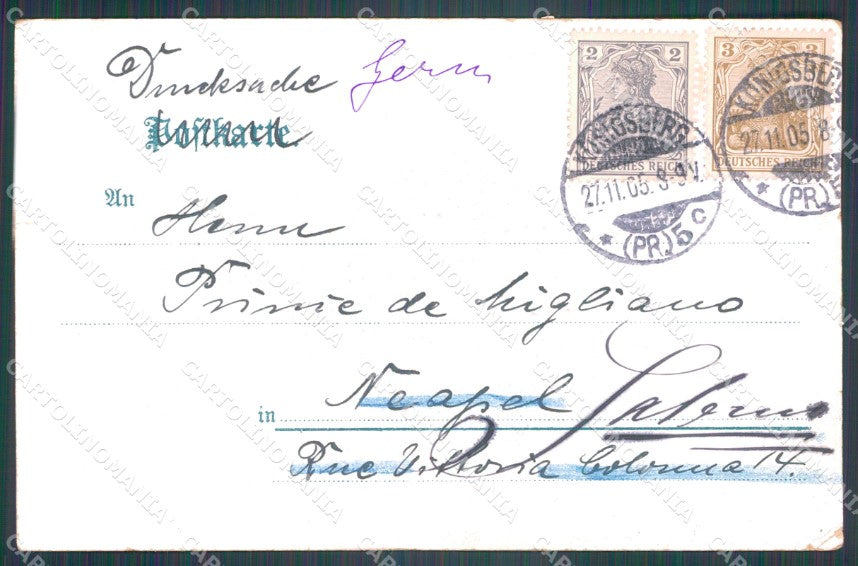 Drucksache Germ
Postkarte.
2 2
DEUTSCHES REICH
3 3
DEUTSCHES REICH
KÖNIGSBERG
27.11.05. 8-9V.
* (PR.) 5c
KÖNIGSBERG
27.11.05. 8
* (PR.) 5
An Herrn
Prince de Migliano
in Neapel Salerno
Rue Vittoria Colonna 14.
CARTOLINOMANIA